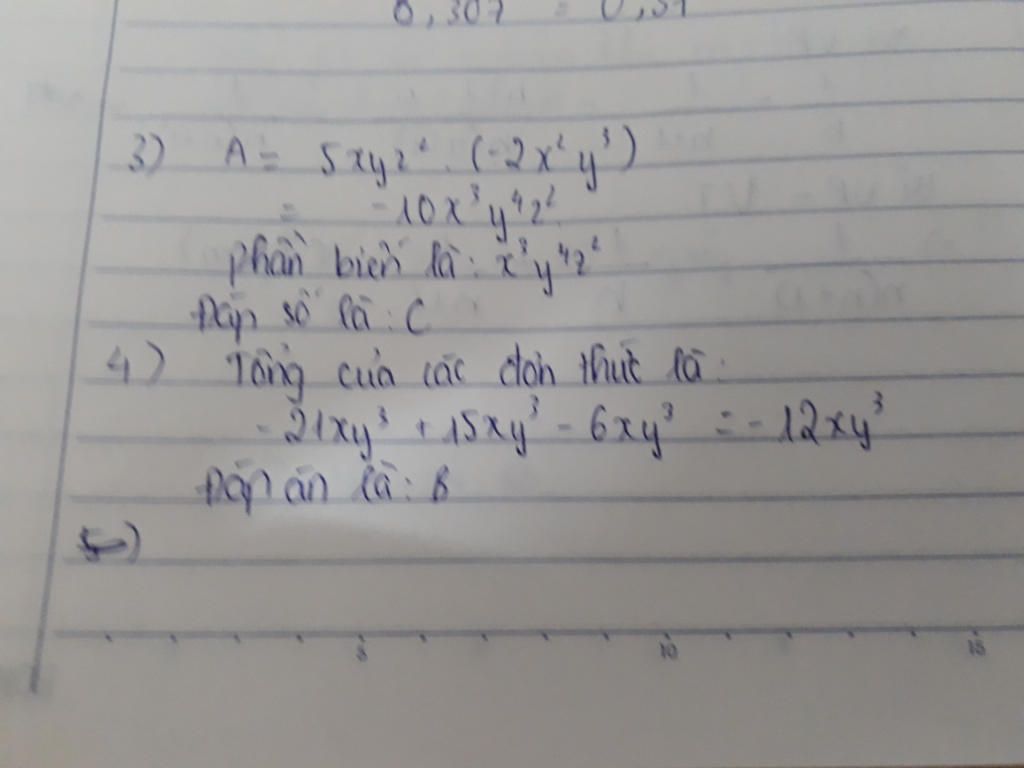 0,307 = 0,31
3) A = 5xyz² . (-2x²y³)
= -10x³y⁴z²
phần biến là : x³y⁴z²
Đáp số là : C
4) Tổng của các đơn thức là :
-21xy³ + 15xy³ - 6xy³ = -12xy³
Đáp án là : B
5)
5 10 15